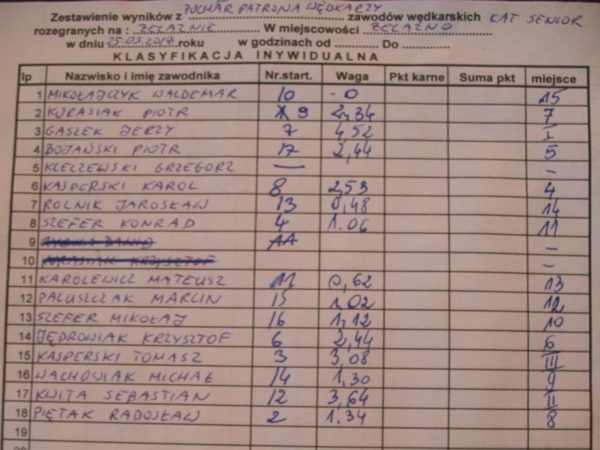 PUCHAR PATRONA WĘDKARZY
Zestawienie wyników z zawodów wędkarskich KAT SENIOR
rozegranych na : ŻELAŹNIE W miejscowości ŻELAZNO
w dniu 25.03.2018 roku w godzinach od Do
KLASYFIKACJA INYWIDUALNA
lp Nazwisko i imię zawodnika Nr.start. Waga Pkt karne Suma pkt miejsce
1 MIKOŁAJCZYK WALDEMAR 10 0 15
2 KURASIAK PIOTR 9 2,34 7
3 GASZEK JERZY 7 4,52 I
4 BOJAŃSKI PIOTR 17 2,44 5
5 KLECZEWSKI GRZEGORZ — –
6 KASPERSKI KAROL 8 2,53 4
7 ROLNIK JAROSŁAW 13 0,48 14
8 SZEFER KONRAD 4 1.06 11
9 –
10 –
11 KAROLEWICZ MATEUSZ 11 0,62 13
12 PALUSZCZAK MARCIN 15 1,02 12
13 SZEFER MIKOŁAJ 16 1,12 10
14 JĘDROWIAK KRZYSZTOF 6 2,44 6
15 KASPERSKI TOMASZ 3 3,08 III
16 WACHOWIAK MICHAŁ 14 1,30 9
17 KWITA SEBASTIAN 12 3,64 II
18 PIĘTAK RADOSŁAW 2 1.34 8
19
20